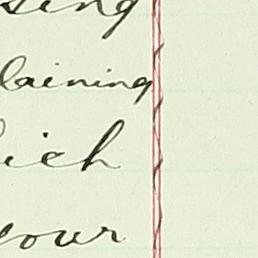 sing
laining
ich
your